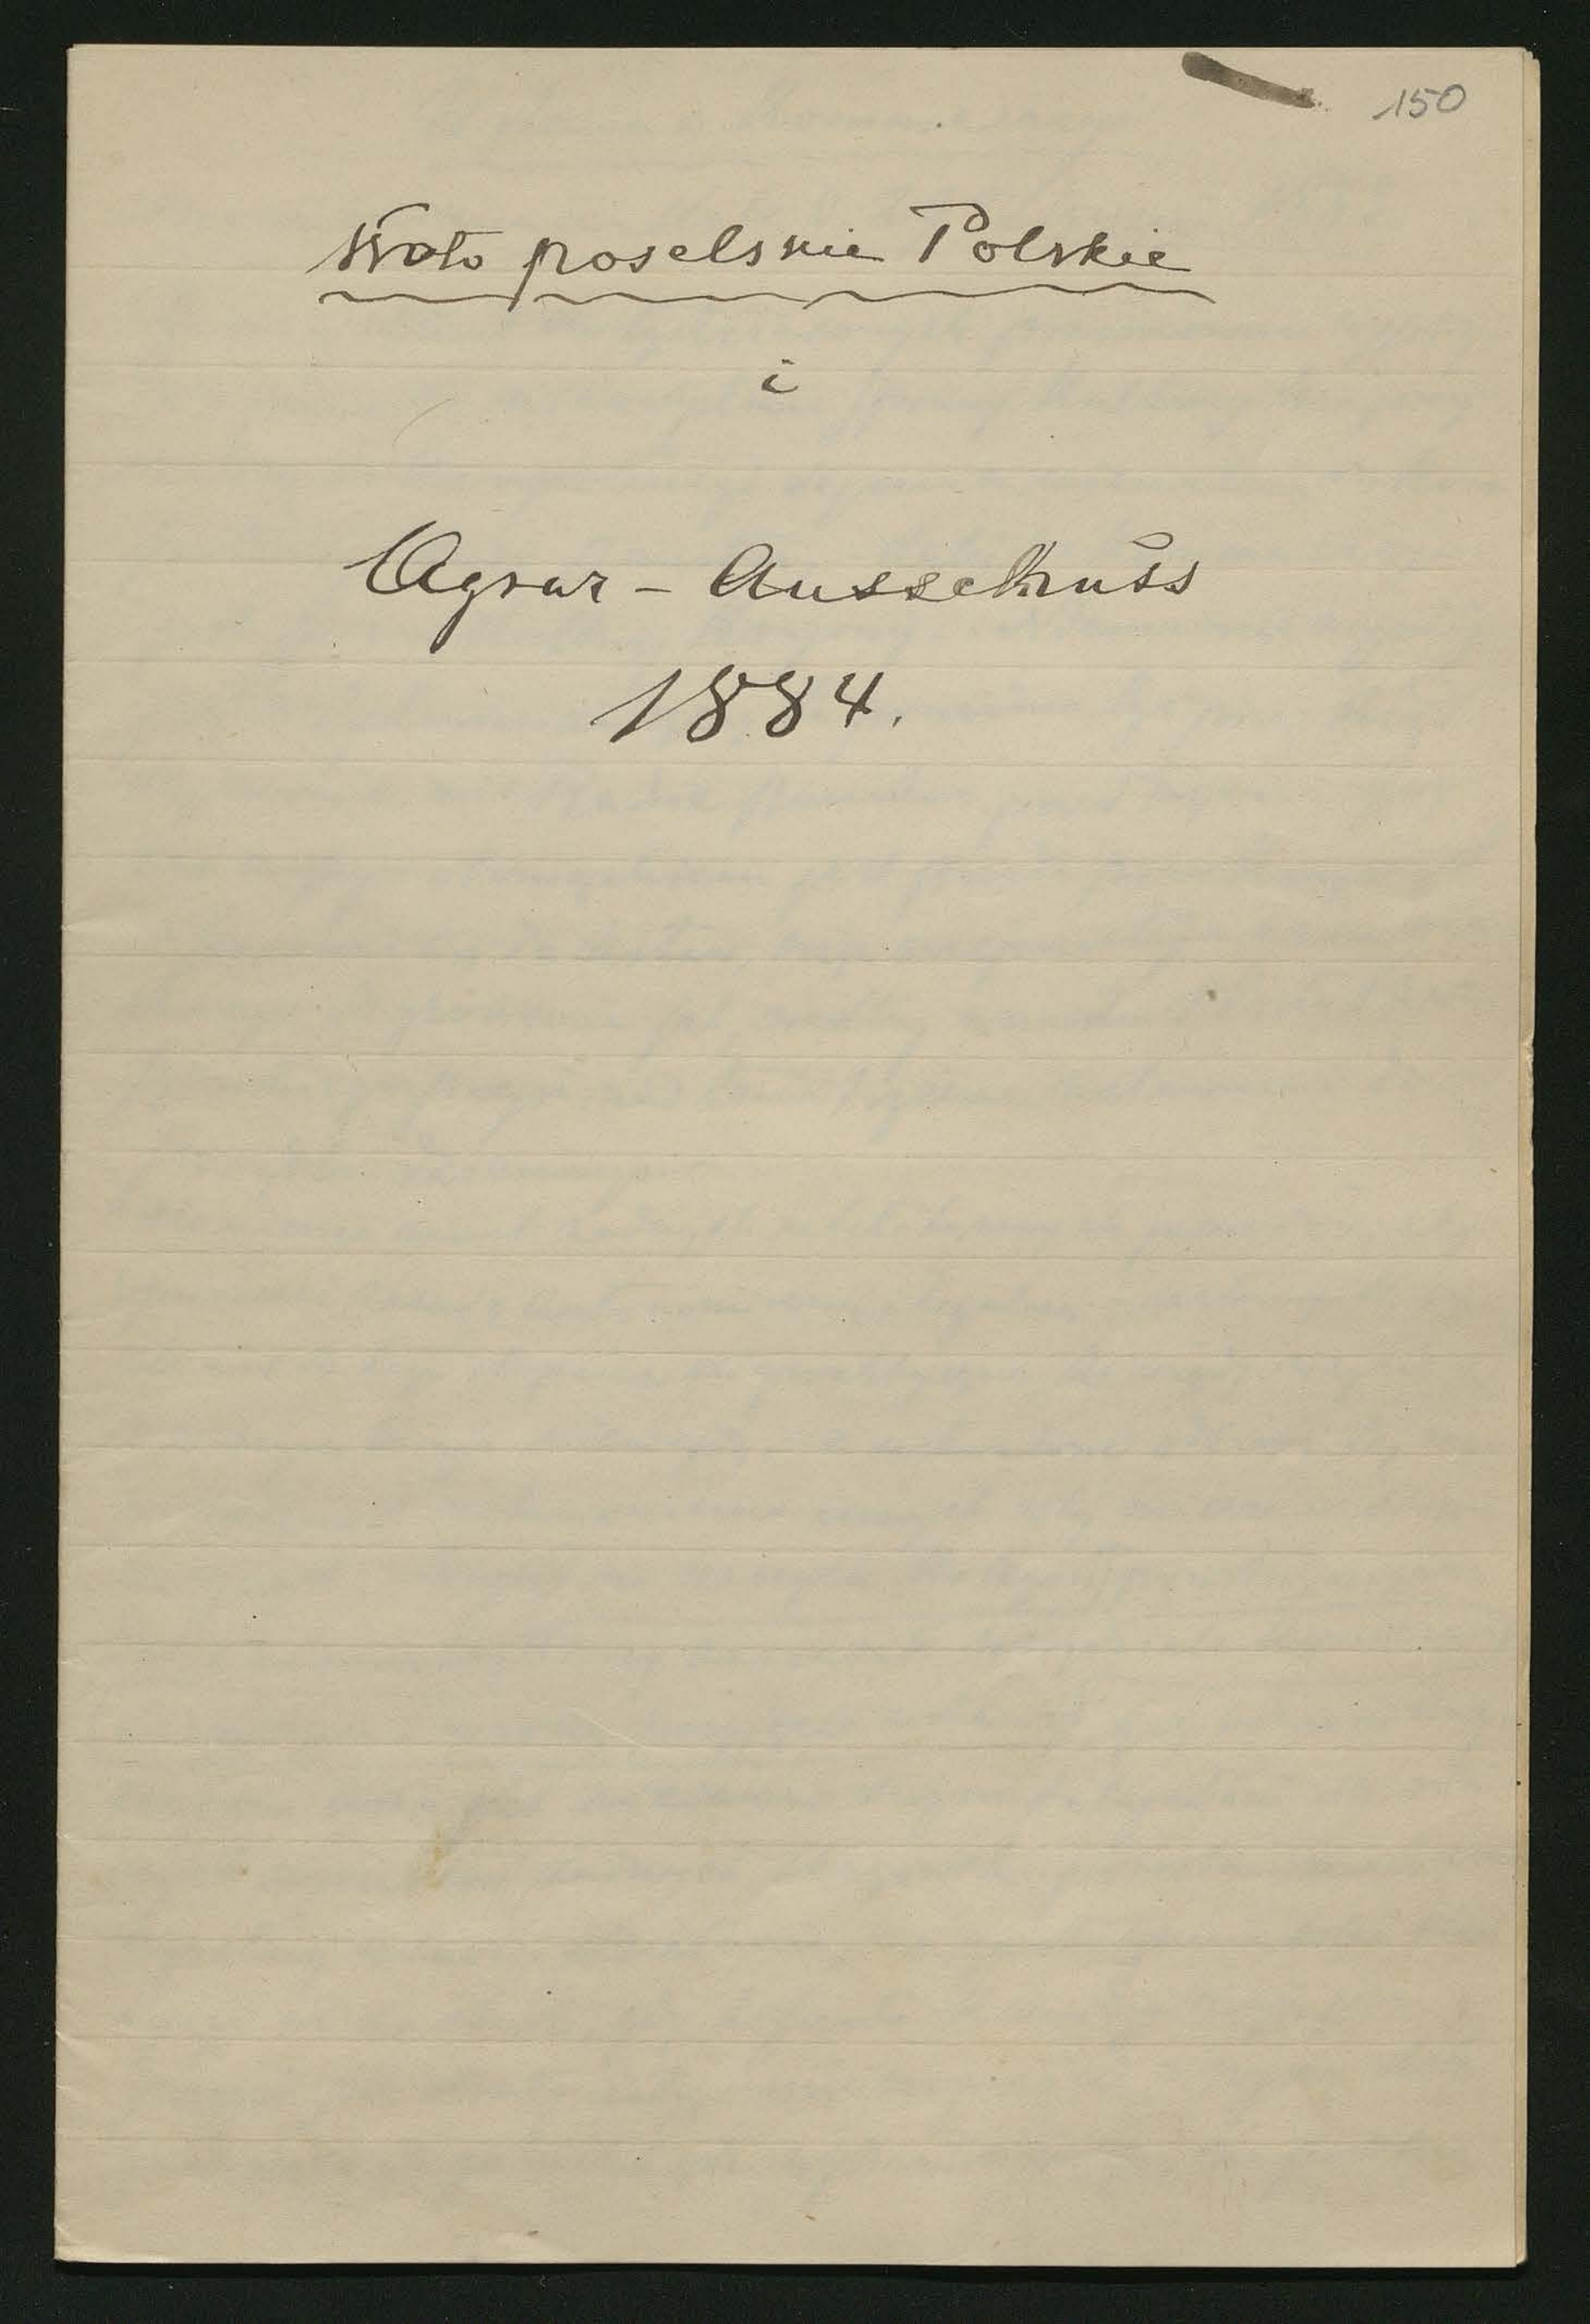 150
Koło poselskie Polskie
i
Agrar - Ausschuss
1884.